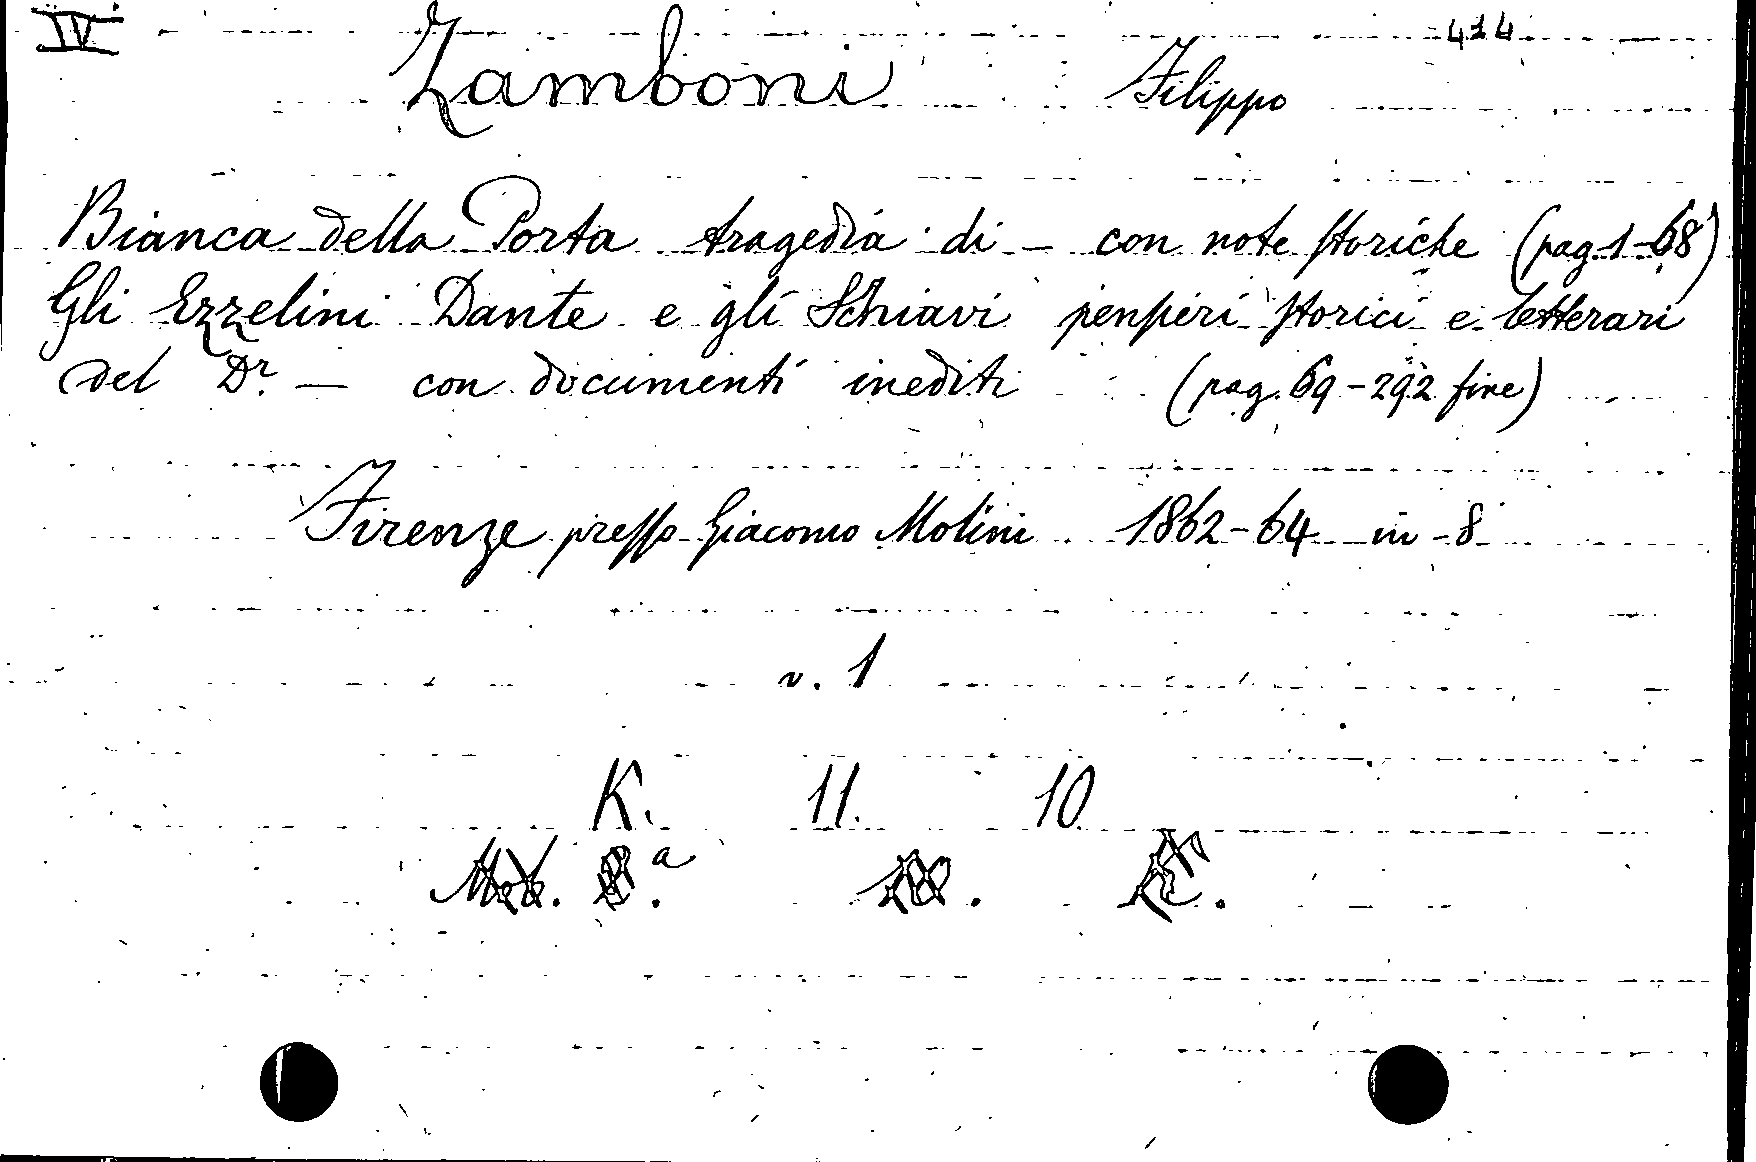 IV 414
Zamboni Filippo
Bianca della Porta tragedia di – con note storiche (pag. 1-68)
Gli Ezzelini Dante e gli Schiavi pensieri storici e letterari
del Dr. — con documenti inediti (pag. 69-292 fine)
Firenze presso Giacomo Molini 1862-64 in-8
v. 1
K. 11. 10